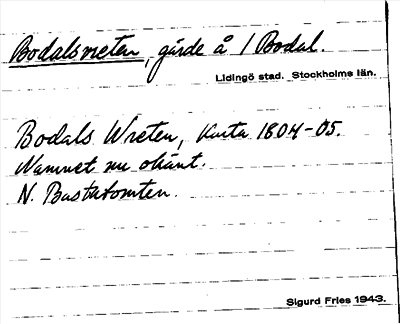 Bodalsvreten, gärde å 1 Bodal.
Lidingö stad. Stockholms län.
Bodals Wreten, Karta 1804-05.
Namnet nu okänt.
N. Bastutomten.
Sigurd Fries 1943.